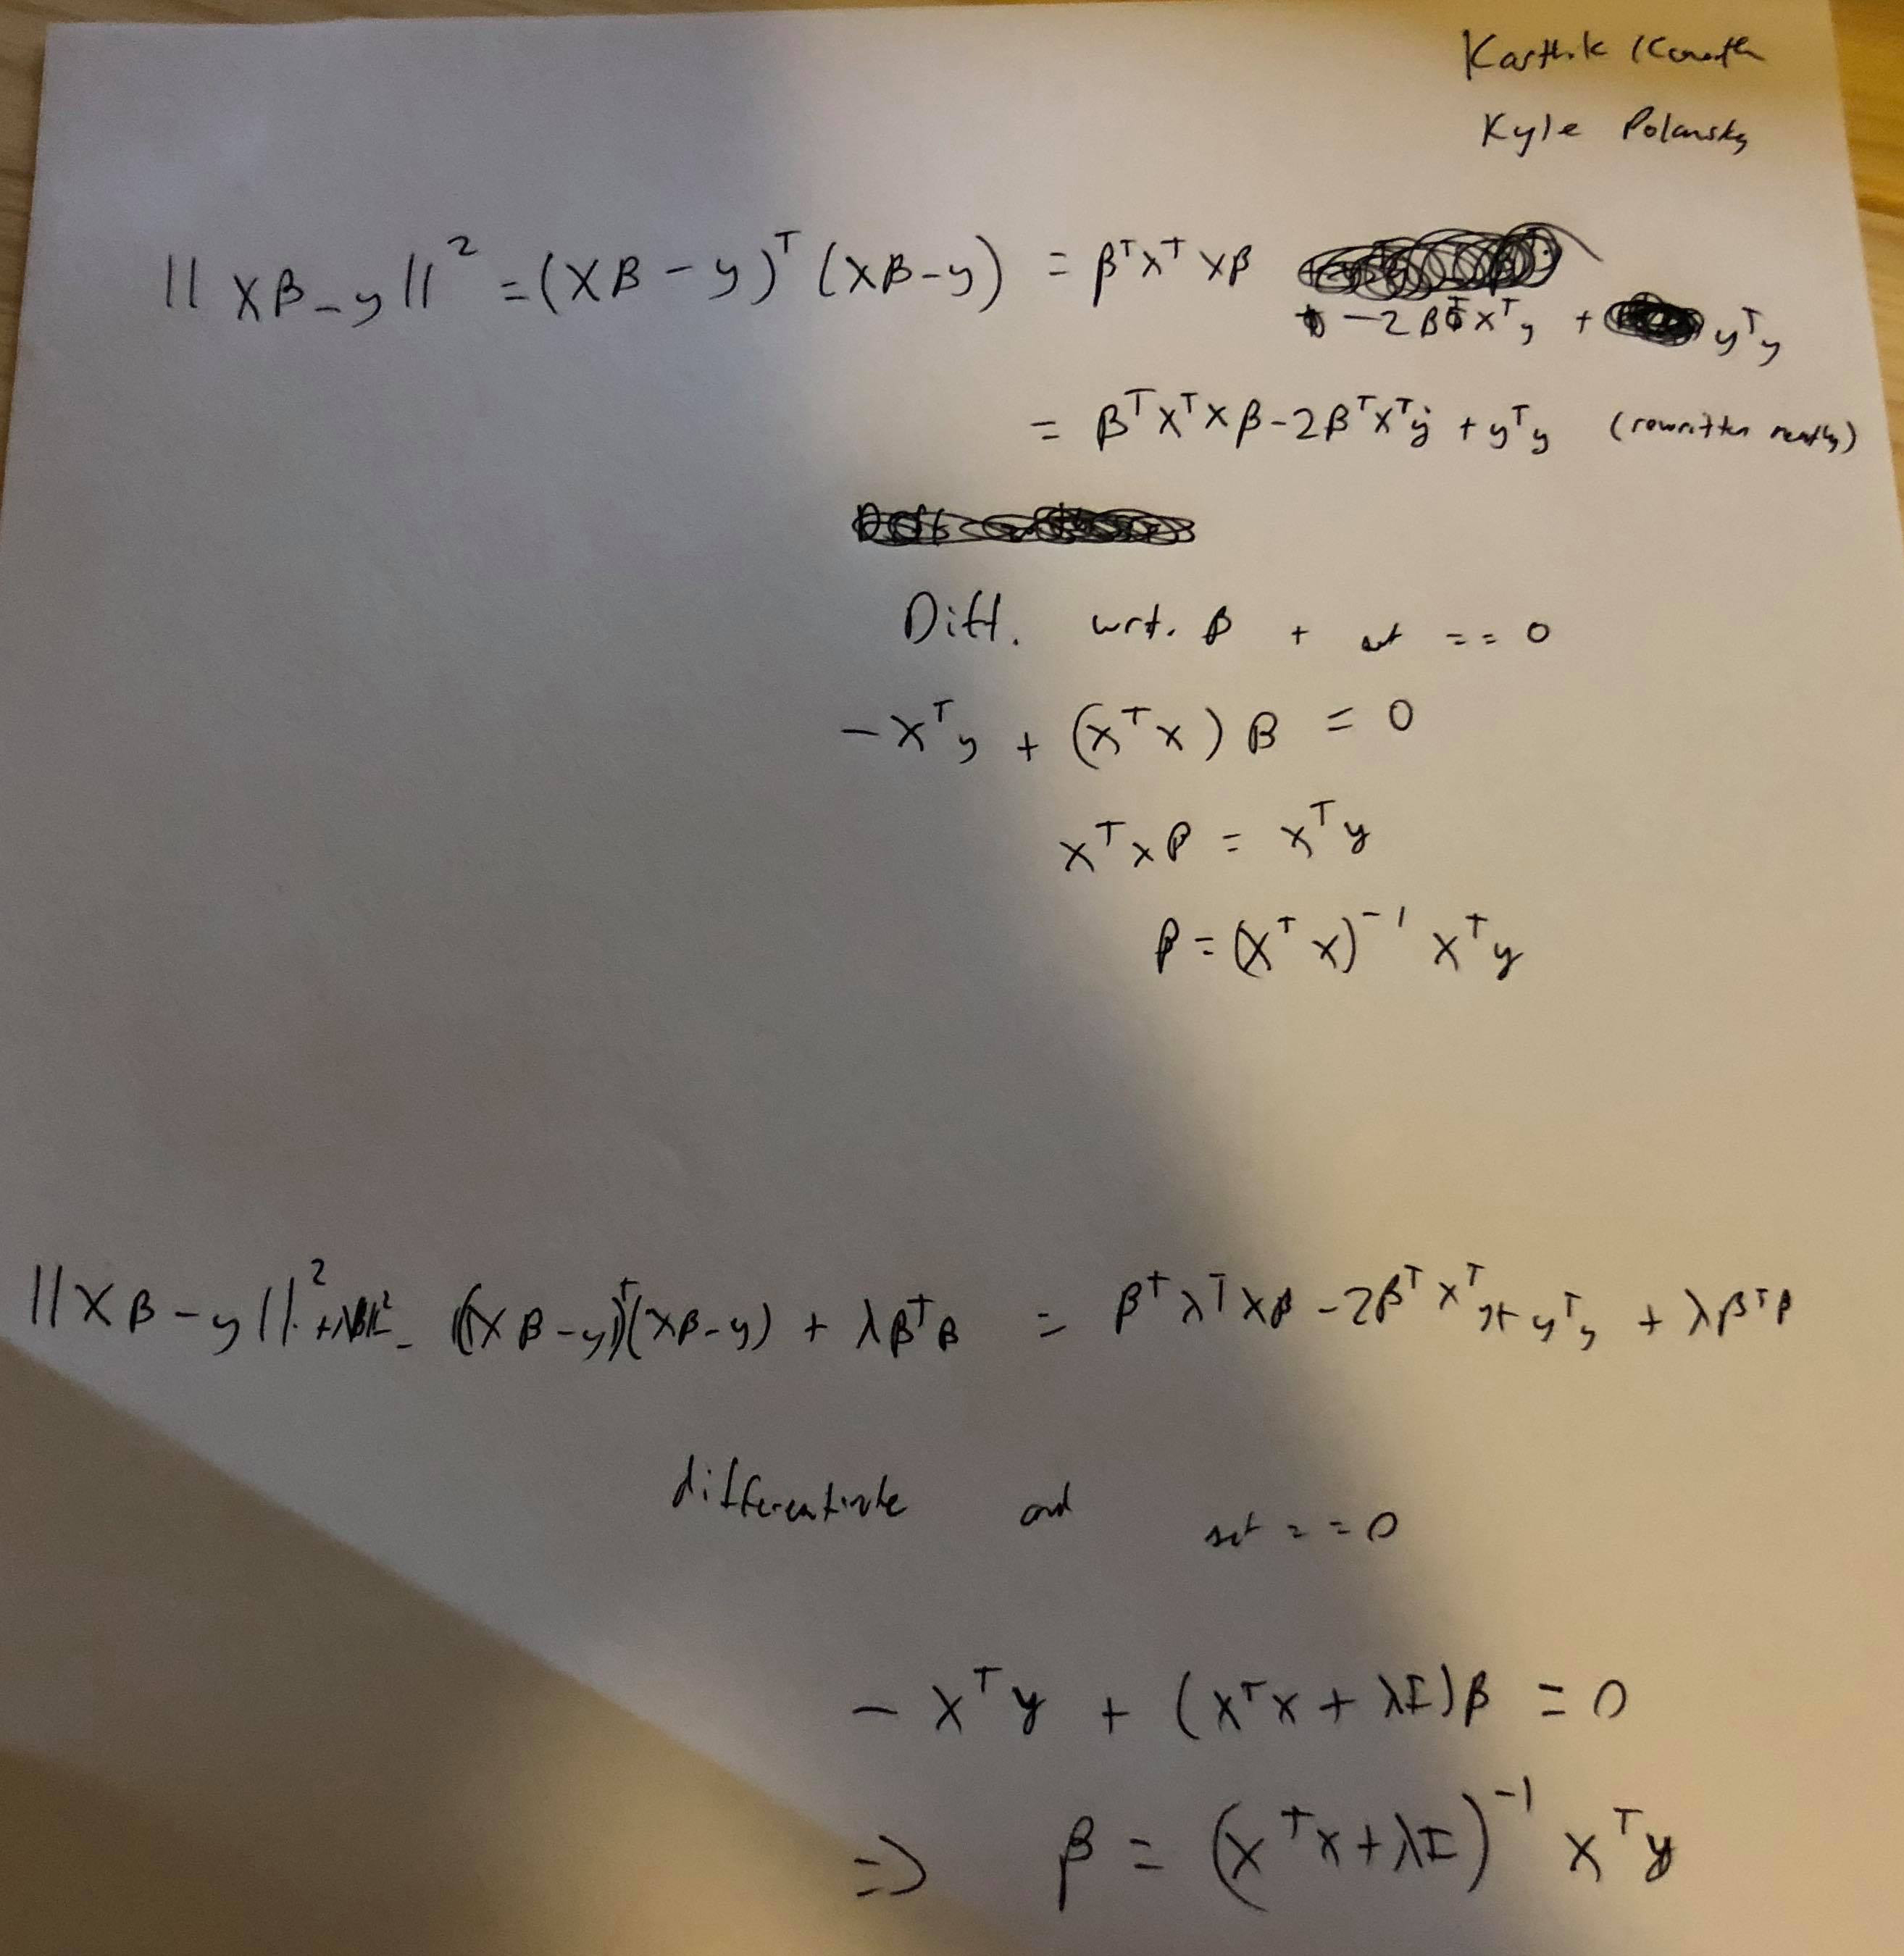 Karthik
Kyle Polansky
|| Xβ - y ||² = (Xβ - y)ᵀ (Xβ - y) = βᵀXᵀXβ
- 2βᵀXᵀy + yᵀy
= βᵀXᵀXβ - 2βᵀXᵀy + yᵀy (rewritten neatly)
Diff. wrt. β + set == 0
- Xᵀy + (XᵀX) β = 0
XᵀXβ = Xᵀy
β = (XᵀX)⁻¹ Xᵀy
||Xβ - y||² + λ||β||² = (Xβ - y)ᵀ(Xβ - y) + λβᵀβ = βᵀλᵀXβ - 2βᵀXᵀy + yᵀy + λβᵀβ
differentiate and set == 0
- Xᵀy + (XᵀX + λI)β = 0
=> β = (XᵀX + λI)⁻¹ Xᵀy